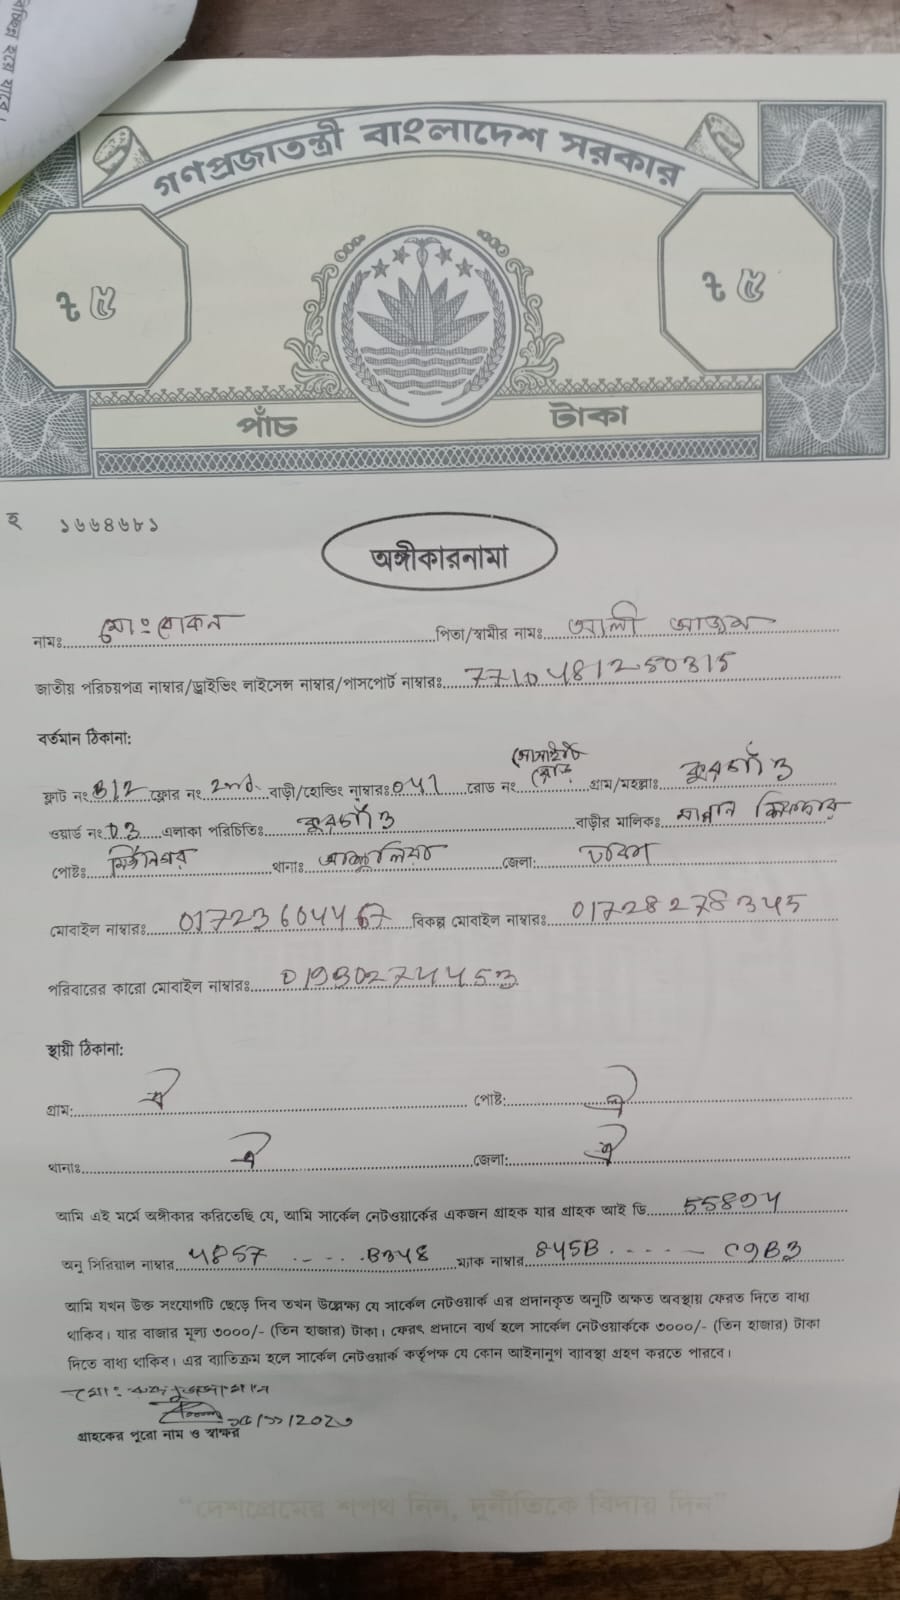 বিচ্ছিন্ন হয়ে যাবে।
গণপ্রজাতন্ত্রী বাংলাদেশ সরকার
৳ ৫ ৳ ৫
পাঁচ টাকা
হ ১৬৬৪৬৮১
অঙ্গীকারনামা
নামঃ মোঃ রোকন পিতা/স্বামীর নামঃ আলী আজম
জাতীয় পরিচয়পত্র নাম্বার/ড্রাইভিং লাইসেন্স নাম্বার/পাসপোর্ট নাম্বারঃ 7710481250315
বর্তমান ঠিকানা:
ফ্লাট নং B/2 ফ্লোর নং 2nd বাড়ী/হোল্ডিং নাম্বারঃ 041 রোড নং সোসাইটি রোড গ্রাম/মহল্লাঃ কুরগাঁও
ওয়ার্ড নং 03 এলাকা পরিচিতিঃ কুরগাঁও বাড়ীর মালিকঃ মান্নান
পোষ্টঃ মির্জানগর থানাঃ আশুলিয়া জেলা: ঢাকা
মোবাইল নাম্বারঃ 01723604467 বিকল্প মোবাইল নাম্বারঃ 01728278345
পরিবারের কারো মোবাইল নাম্বারঃ 01930274453
স্থায়ী ঠিকানা:
গ্রাম: ঐ পোষ্ট: ঐ
থানাঃ ঐ জেলা: ঐ
আমি এই মর্মে অঙ্গীকার করিতেছি যে, আমি সার্কেল নেটওয়ার্কের একজন গ্রাহক যার গ্রাহক আই ডি 55894
অনু সিরিয়াল নাম্বার 4857 ..... B348 ম্যাক নাম্বার 845B ..... C9B3
আমি যখন উক্ত সংযোগটি ছেড়ে দিব তখন উল্লেক্ষ্য যে সার্কেল নেটওয়ার্ক এর প্রদানকৃত অনুটি অক্ষত অবস্থায় ফেরত দিতে বাধ্য
থাকিব। যার বাজার মূল্য ৩০০০/- (তিন হাজার) টাকা। ফেরৎ প্রদানে ব্যর্থ হলে সার্কেল নেটওয়ার্ককে ৩০০০/- (তিন হাজার) টাকা
দিতে বাধ্য থাকিব। এর ব্যাতিক্রম হলে সার্কেল নেটওয়ার্ক কর্তৃপক্ষ যে কোন আইনানুগ ব্যাবস্থা গ্রহণ করতে পারবে।
মোঃ
গ্রাহকের পুরো নাম ও স্বাক্ষর
"দেশপ্রেমের শপথ নিন, দুর্নীতিকে বিদায় দিন"